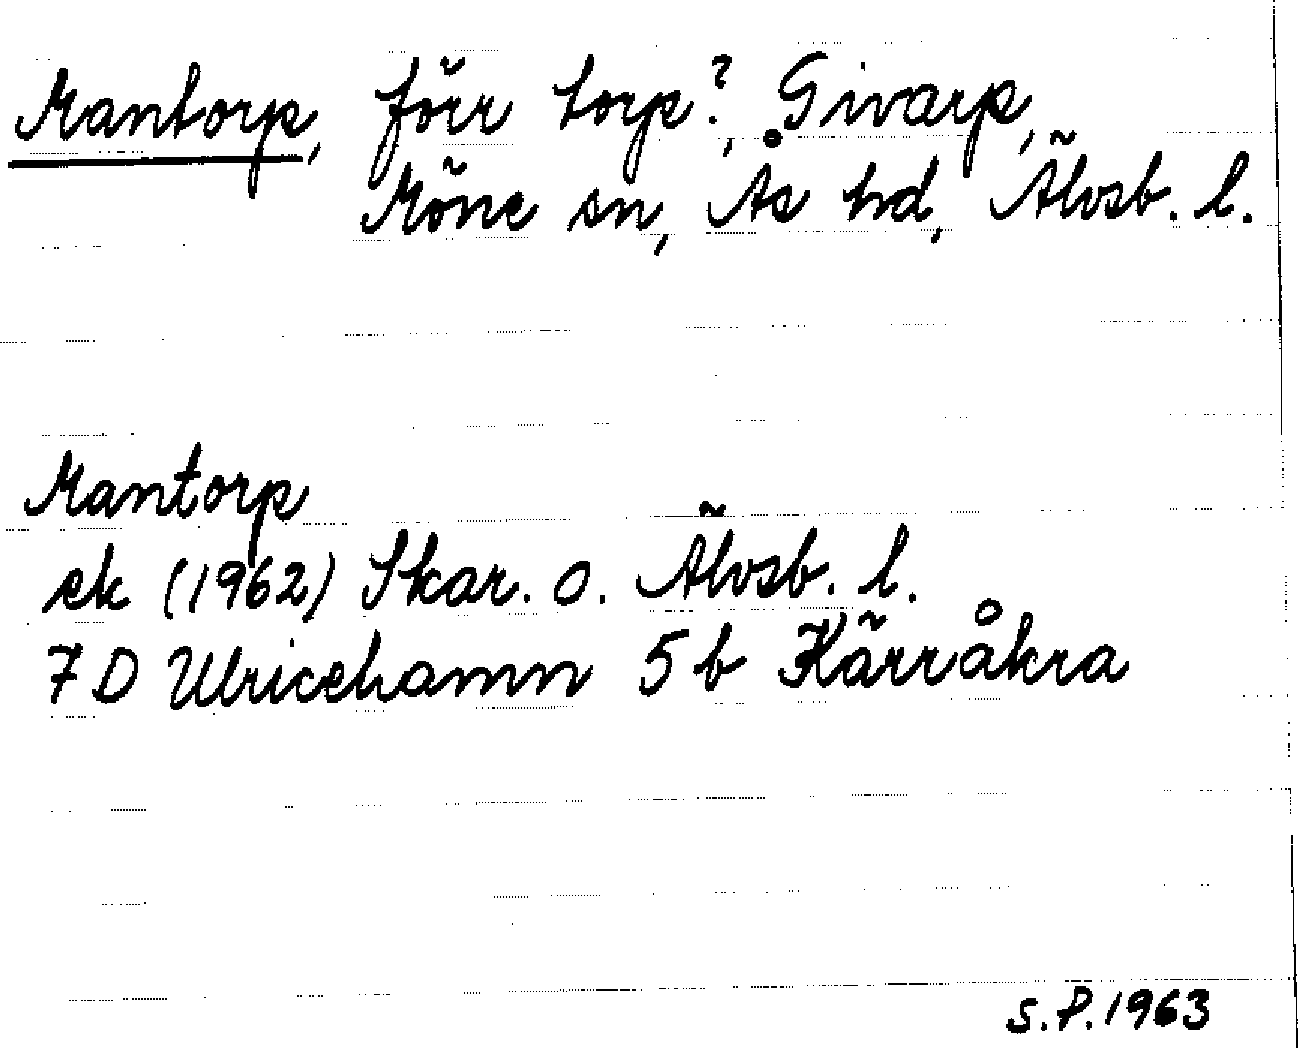 Mantorp, förr torp?, Givarp,
Möne sn, Ås hd, Älvsb. l.
Mantorp
ek (1962) Skar. o. Älvsb. l.
7 D Ulricehamn 5 b Kärråkra
S.P. 1963